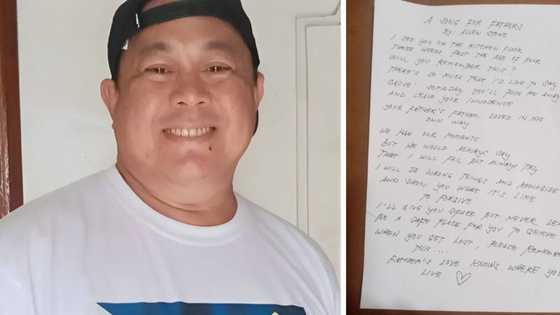 A SONG FOR FATHERS
BY ALLEN STONE
I SEE YOU ON THE KITCHEN FLOOR
THOSE WORDS PAST THE AGE OF FOUR
WILL YOU REMEMBER THIS?
THERE'S SO MUCH THAT I'D LIKE TO SAY
SOMEDAY YOU'LL
AND LEAVE YOUR INNOCENCE
YOUR FATHER'S FATHER LOVED IN HIS
OWN WAY
WE HAD OUR MOMENTS
BUT HE WOULD ALWAYS SAY
THAT I WILL FAIL BUT ALWAYS TRY
I WILL DO WRONG THINGS AND APOLOGIZE
AND SHOW YOU WHAT IT'S LIKE
TO FORGIVE
I'LL GIVE YOU SPACE BUT NEVER
BE A SAFE PLACE FOR YOU TO
WHEN YOU GET LOST, PLEASE
THIS...
FATHER'S LOVE KNOWS WHERE YO
LIVE